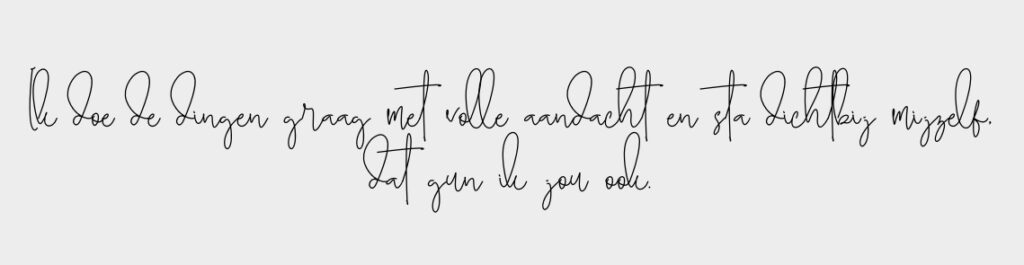 Ik doe de dingen graag met volle aandacht en sta dichtbij mijzelf.
dat gun ik jou ook.